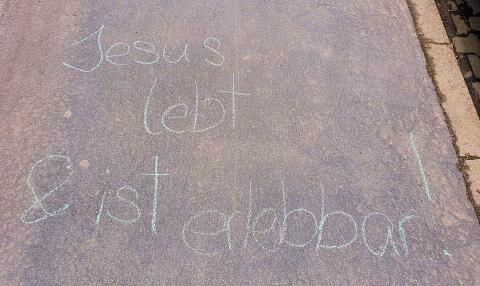 Jesus
lebt
& ist erlebbar!